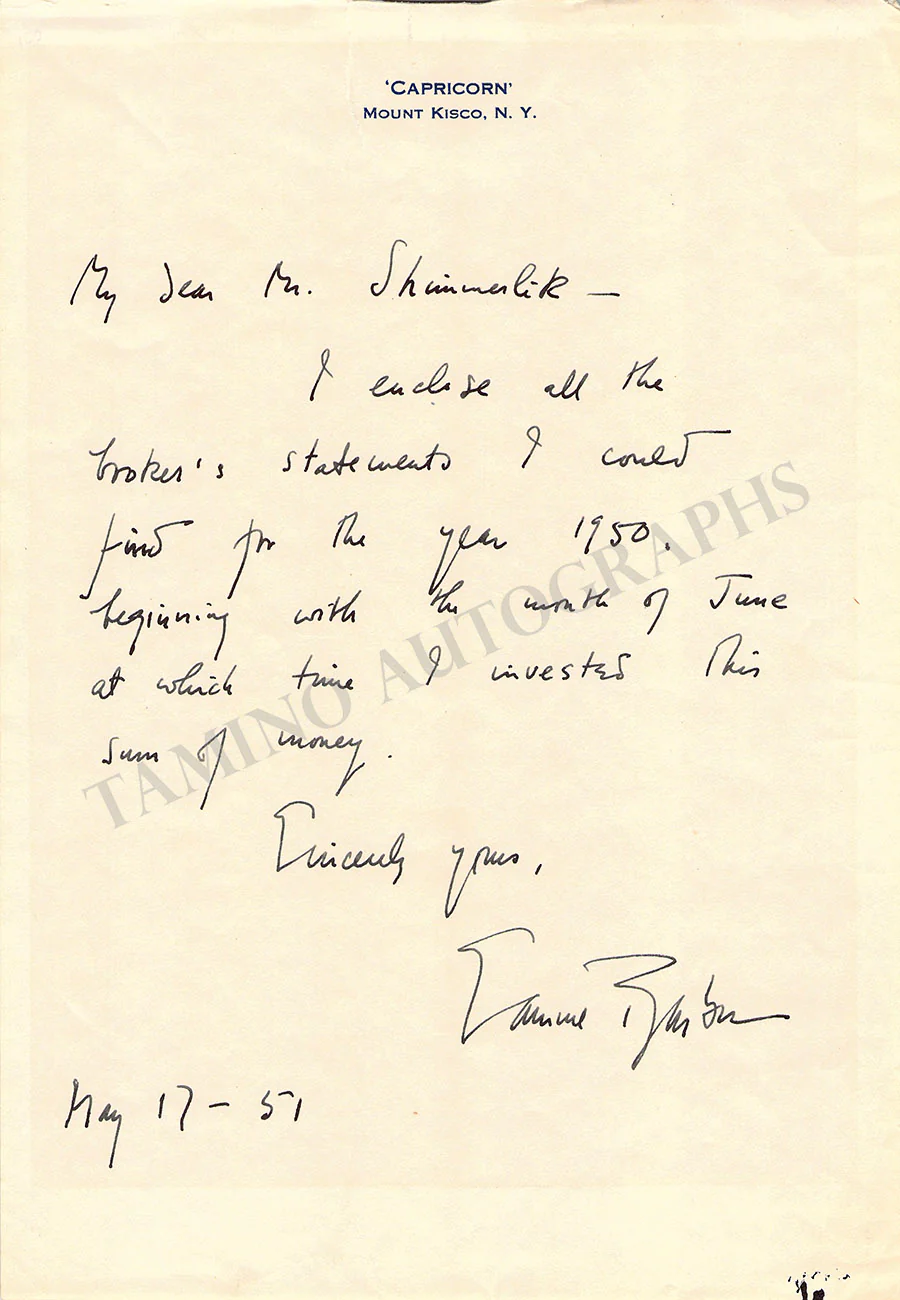 ‘CAPRICORN’
MOUNT KISCO, N. Y.
My dear Mr. Shimmerlik —
I enclose all the
broker's statements I could
find for the year 1950.
beginning with the month of June
at which time I invested this
sum of money.
Sincerely yours,
Samuel Barber
May 17 - 51
TAMINO AUTOGRAPHS